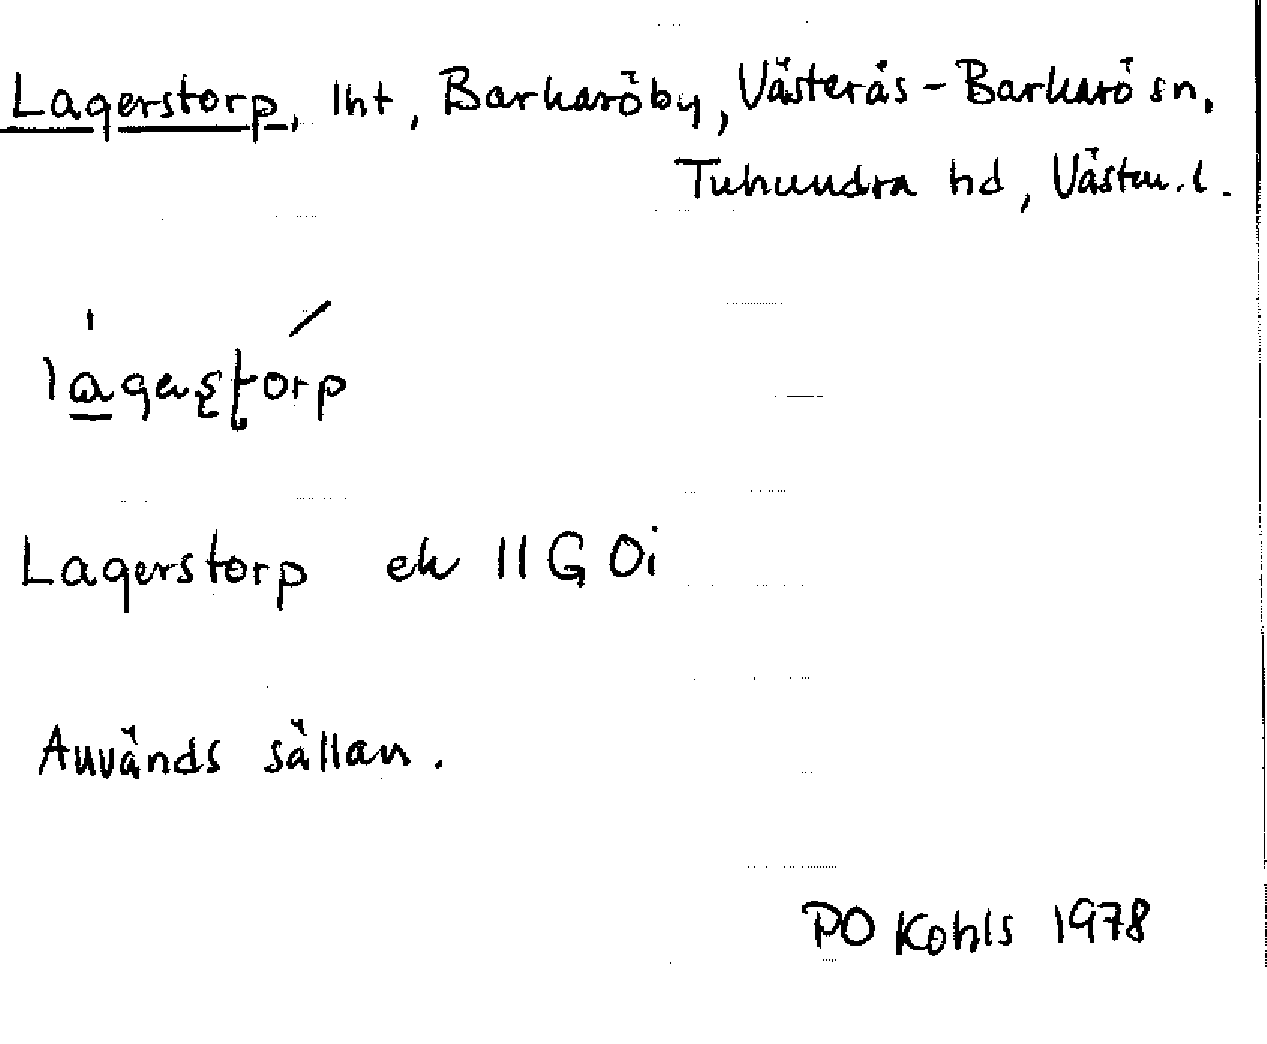 Lagerstorp, lht, Barkaröby, Västerås-Barkarö sn,
Tuhundra hd, Västm.l.
lagerstorp
Lagerstorp ek 11G 0i
Används sällan.
PO Kohls 1978